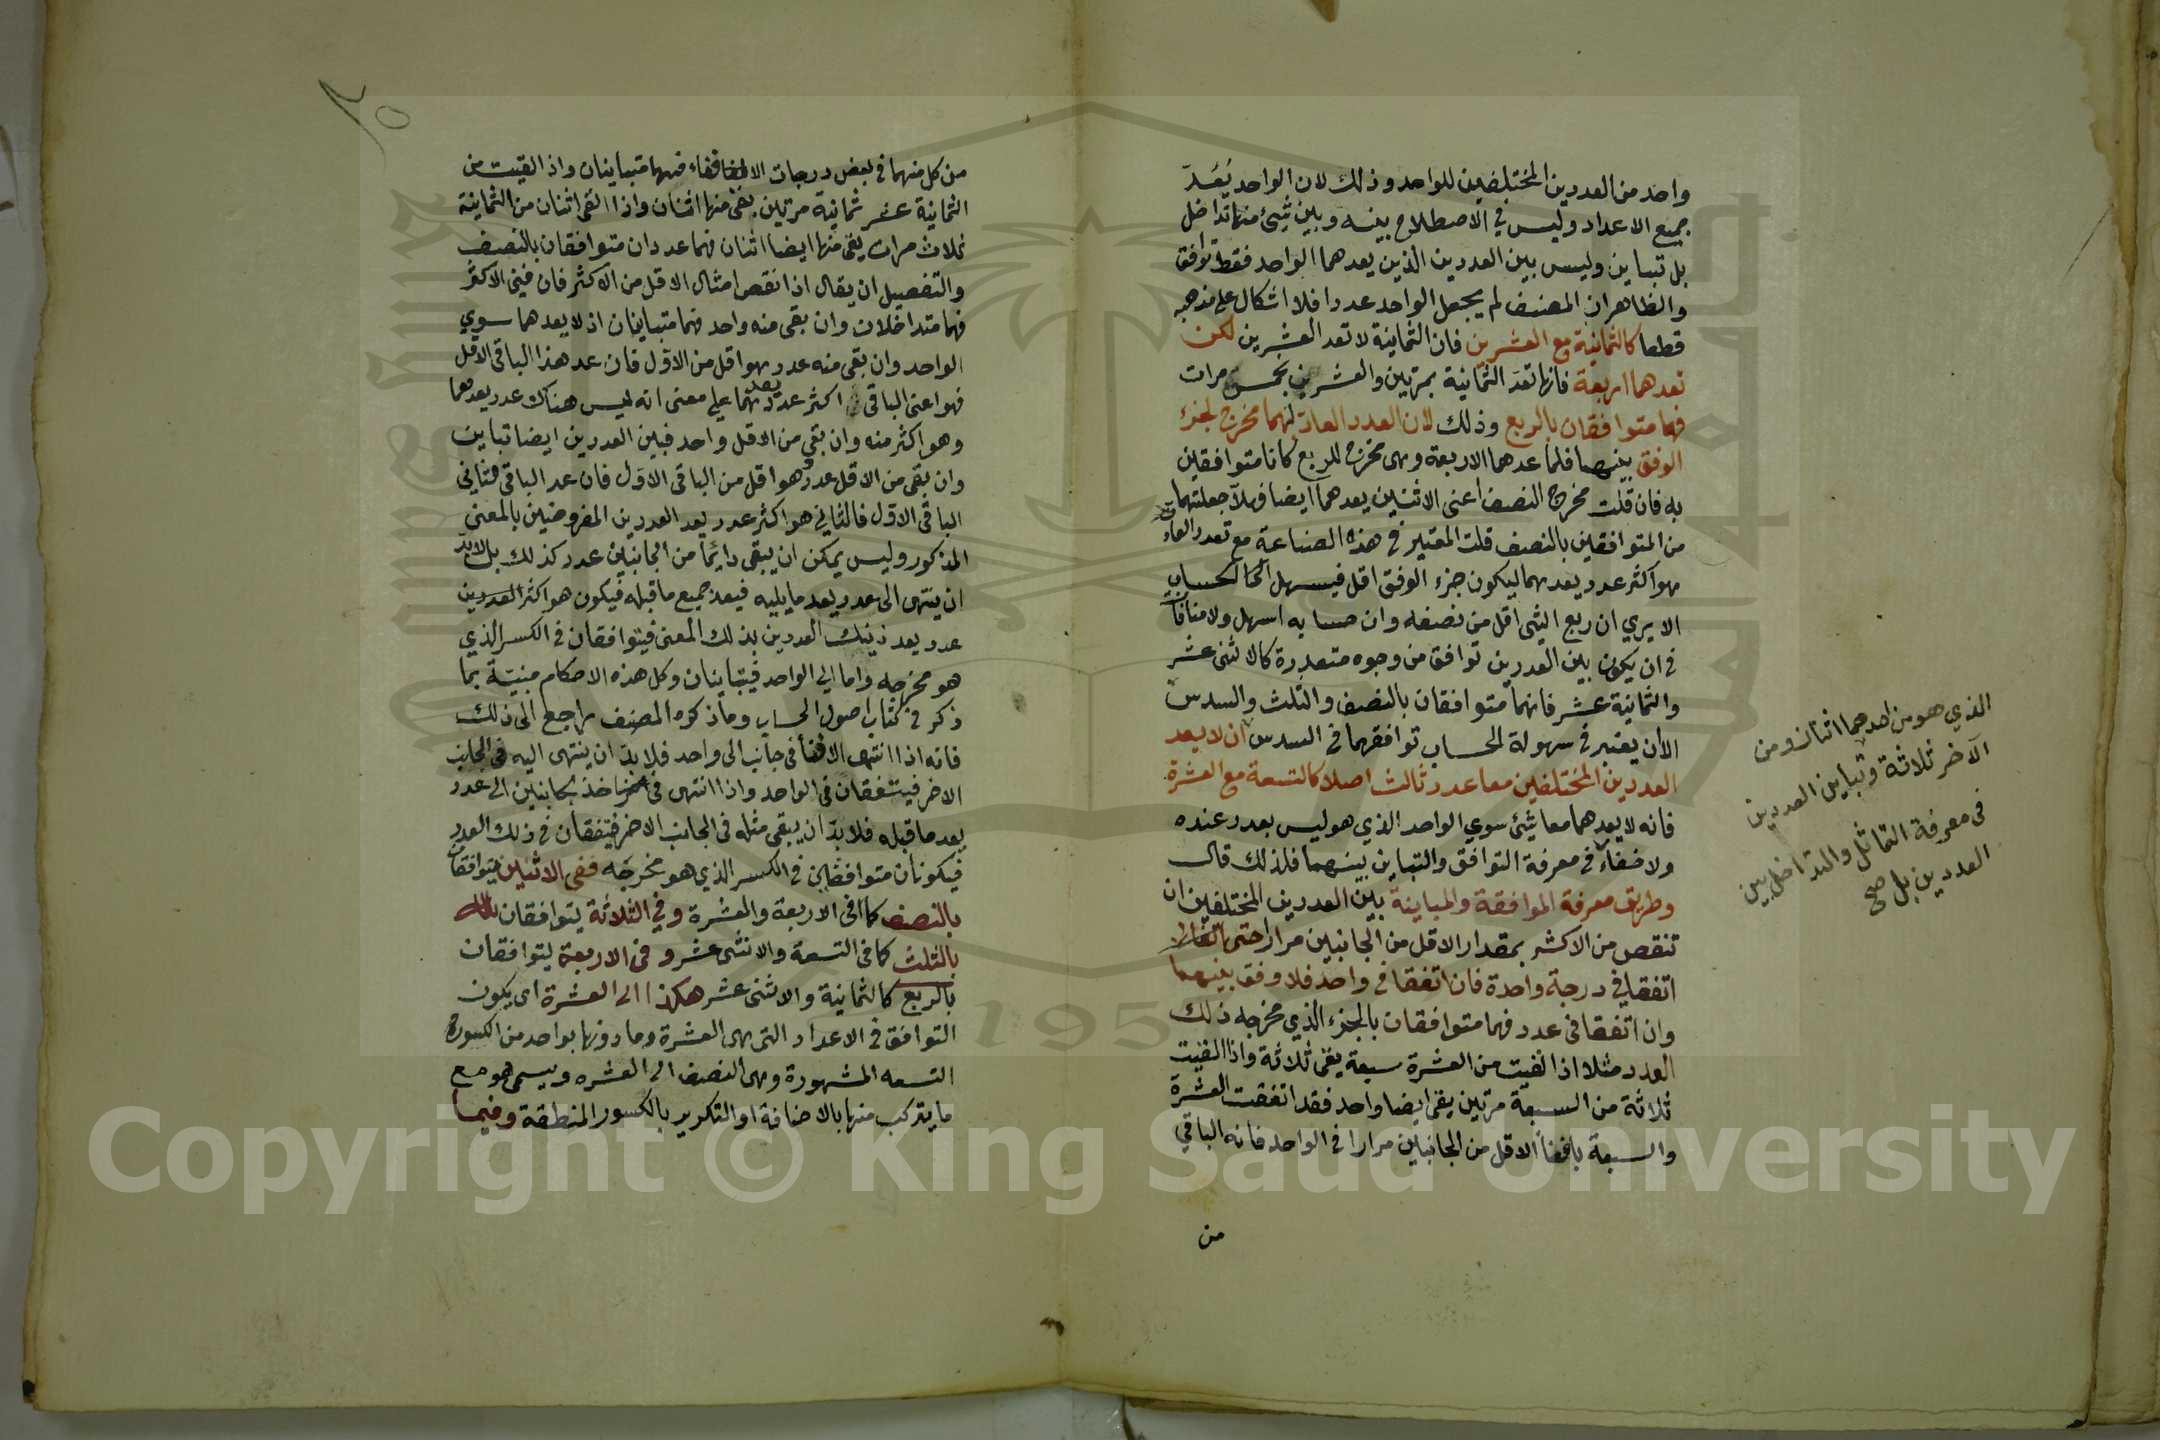 واحد من العددين المختلفين للواحد وذلك لان الواحد يَعُدّ
جميع الاعداد وليس في الاصطلاح بينه وبين شيئ منها تداخل
بل تباين وليس بين العددين الذين يعدهما الواحد فقط توافق
والظاهر ان المصنف لم يجعل الواحد عددا فلا اشكال على مذهبه
قطعا كالثمانية مع العشرين فان الثمانية لا تعد العشرين لكن
تعدهما اربعة فانها تعد الثمانية بمرتين والعشرين بخمس مرات
فهما متوافقان بالربع وذلك لان العدد العاد لهما مخرج لجزء
الوفق بينهما فلما عدهما الاربعة وهى مخرج للربع كانا متوافقين
به فان قلت مخرج النصف اعنى الاثنين يعدهما ايضا فهلا جعلتهما
من المتوافقين بالنصف قلت المعتبر في هذه الصناعة مع تعدد العاد
هو اكثر عدد يعدهما ليكون جزء الوفق اقل فيسهل الحساب
الا يري ان ربع الشئ اقل من نصفه وان حسابه اسهل ولا منافاة
في ان يكون بين العددين توافق من وجوه متعددة كالاثنى عشر
والثمانية عشر فانهما متوافقان بالنصف والثلث والسدس
الا ان يعتبر في سهولة الحساب توافقهما في السدس ان لا يعد
العددين المختلفين معا عدد ثالث اصلا كالتسعة مع العشرة
فانه لا يعدهما معا شيئ سوي الواحد الذي هو ليس بعدد عنده
ولا خفاء في معرفة التوافق والتباين بينهما فلذلك قال
وطريق معرفة الموافقة والمباينة بين العددين المختلفين ان
تنقص من الاكثر بمقدار الاقل من الجانبين مرارا حتى
اتفقا في درجة واحدة فان اتفقا في واحد فلا وفق بينهما
وان اتفقا في عدد فهما متوافقان بالجزء الذي مخرجه ذلك
العدد مثلا اذا القيت من العشرة سبعة بقى ثلاثة واذا القيت
ثلاثة من السبعة مرتين بقى ايضا واحد فقد اتفقت العشرة
والسبعة بافناء الاقل من الجانبين مرارا في الواحد فانه الباقي
من
الذي هو من احدهما اثنان ومن
الآخر ثلاثة وتباين العددين
في معرفة التماثل والتداخل بين
العددين بل صح
من كل منهما في بعض درجات الافناء فهما متباينان واذا القيت من
الثمانية عشر ثمانية مرتين بقى منها اثنان واذا القى اثنان من الثمانية
ثلاث مرات بقى منها ايضا اثنان فهما عددان متوافقان بالنصف
والتفصيل ان يقال اذا نقص امثال الاقل من الاكثر فان فنى الاكثر
فهما متداخلان وان بقى منه واحد فهما متباينان اذ لا يعدهما سوي
الواحد وان بقى منه عدد فهو اقل من الاول فان عد هذا الباقى الاقل
فهو اعنى الباقى اكثر عدد يعدهما على معنى انه ليس هناك عدد يعدهما
وهو اكثر منه وان بقي من الاقل واحد فبين العددين ايضا تباين
وان بقى من الاقل عدد وهو اقل من الباقى الاول فان عد الباقى الثاني
الباقى الاول فالثاني هو اكثر عدد يعد العددين المفروضين بالمعنى
المذكور وليس يمكن ان يبقى دائما من الجانبين عدد كذلك بل لابد
ان ينتهى الى عدد يعد ما يليه فيعد جميع ما قبله فيكون هو اكثر العددين
عدد يعد ذينك العددين بذلك المعنى فيتوافقان في الكسر الذي
هو مخرجه واما الى الواحد فيتباينان وكل هذه الاحكام مبنية بما
ذكر في كتاب اصول الحساب وما ذكره المصنف راجع الى ذلك
فانه اذا انتهى الافناء في جانب الى واحد فلابد ان ينتهى اليه في الجانب
الاخر فيتفقان في الواحد واذا انتهى في احد الجانبين الى عدد
يعد ما قبله فلابد ان يبقى مثله في الجانب الاخر فيتفقان في ذلك العدد
فيكونان متوافقين في الكسر الذي هو مخرجه ففى الاثنين يتوافقان
بالنصف كما في الاربعة والعشرة وفي الثلاثة يتوافقان
بالثلث كما في التسعة والاثنى عشر وفي الاربعة يتوافقان
بالربع كالثمانية والاثنى عشر هكذا الى العشرة اى يكون
التوافق في الاعداد التى هى العشرة وما دونها بواحد من الكسور
التسعه المشهورة وهى النصف الى العشره ويسمى هو مع
ما يتركب منها بالاضافة او التكرير بالكسور المنطقة وفيما
1957
Copyright © King Saud University